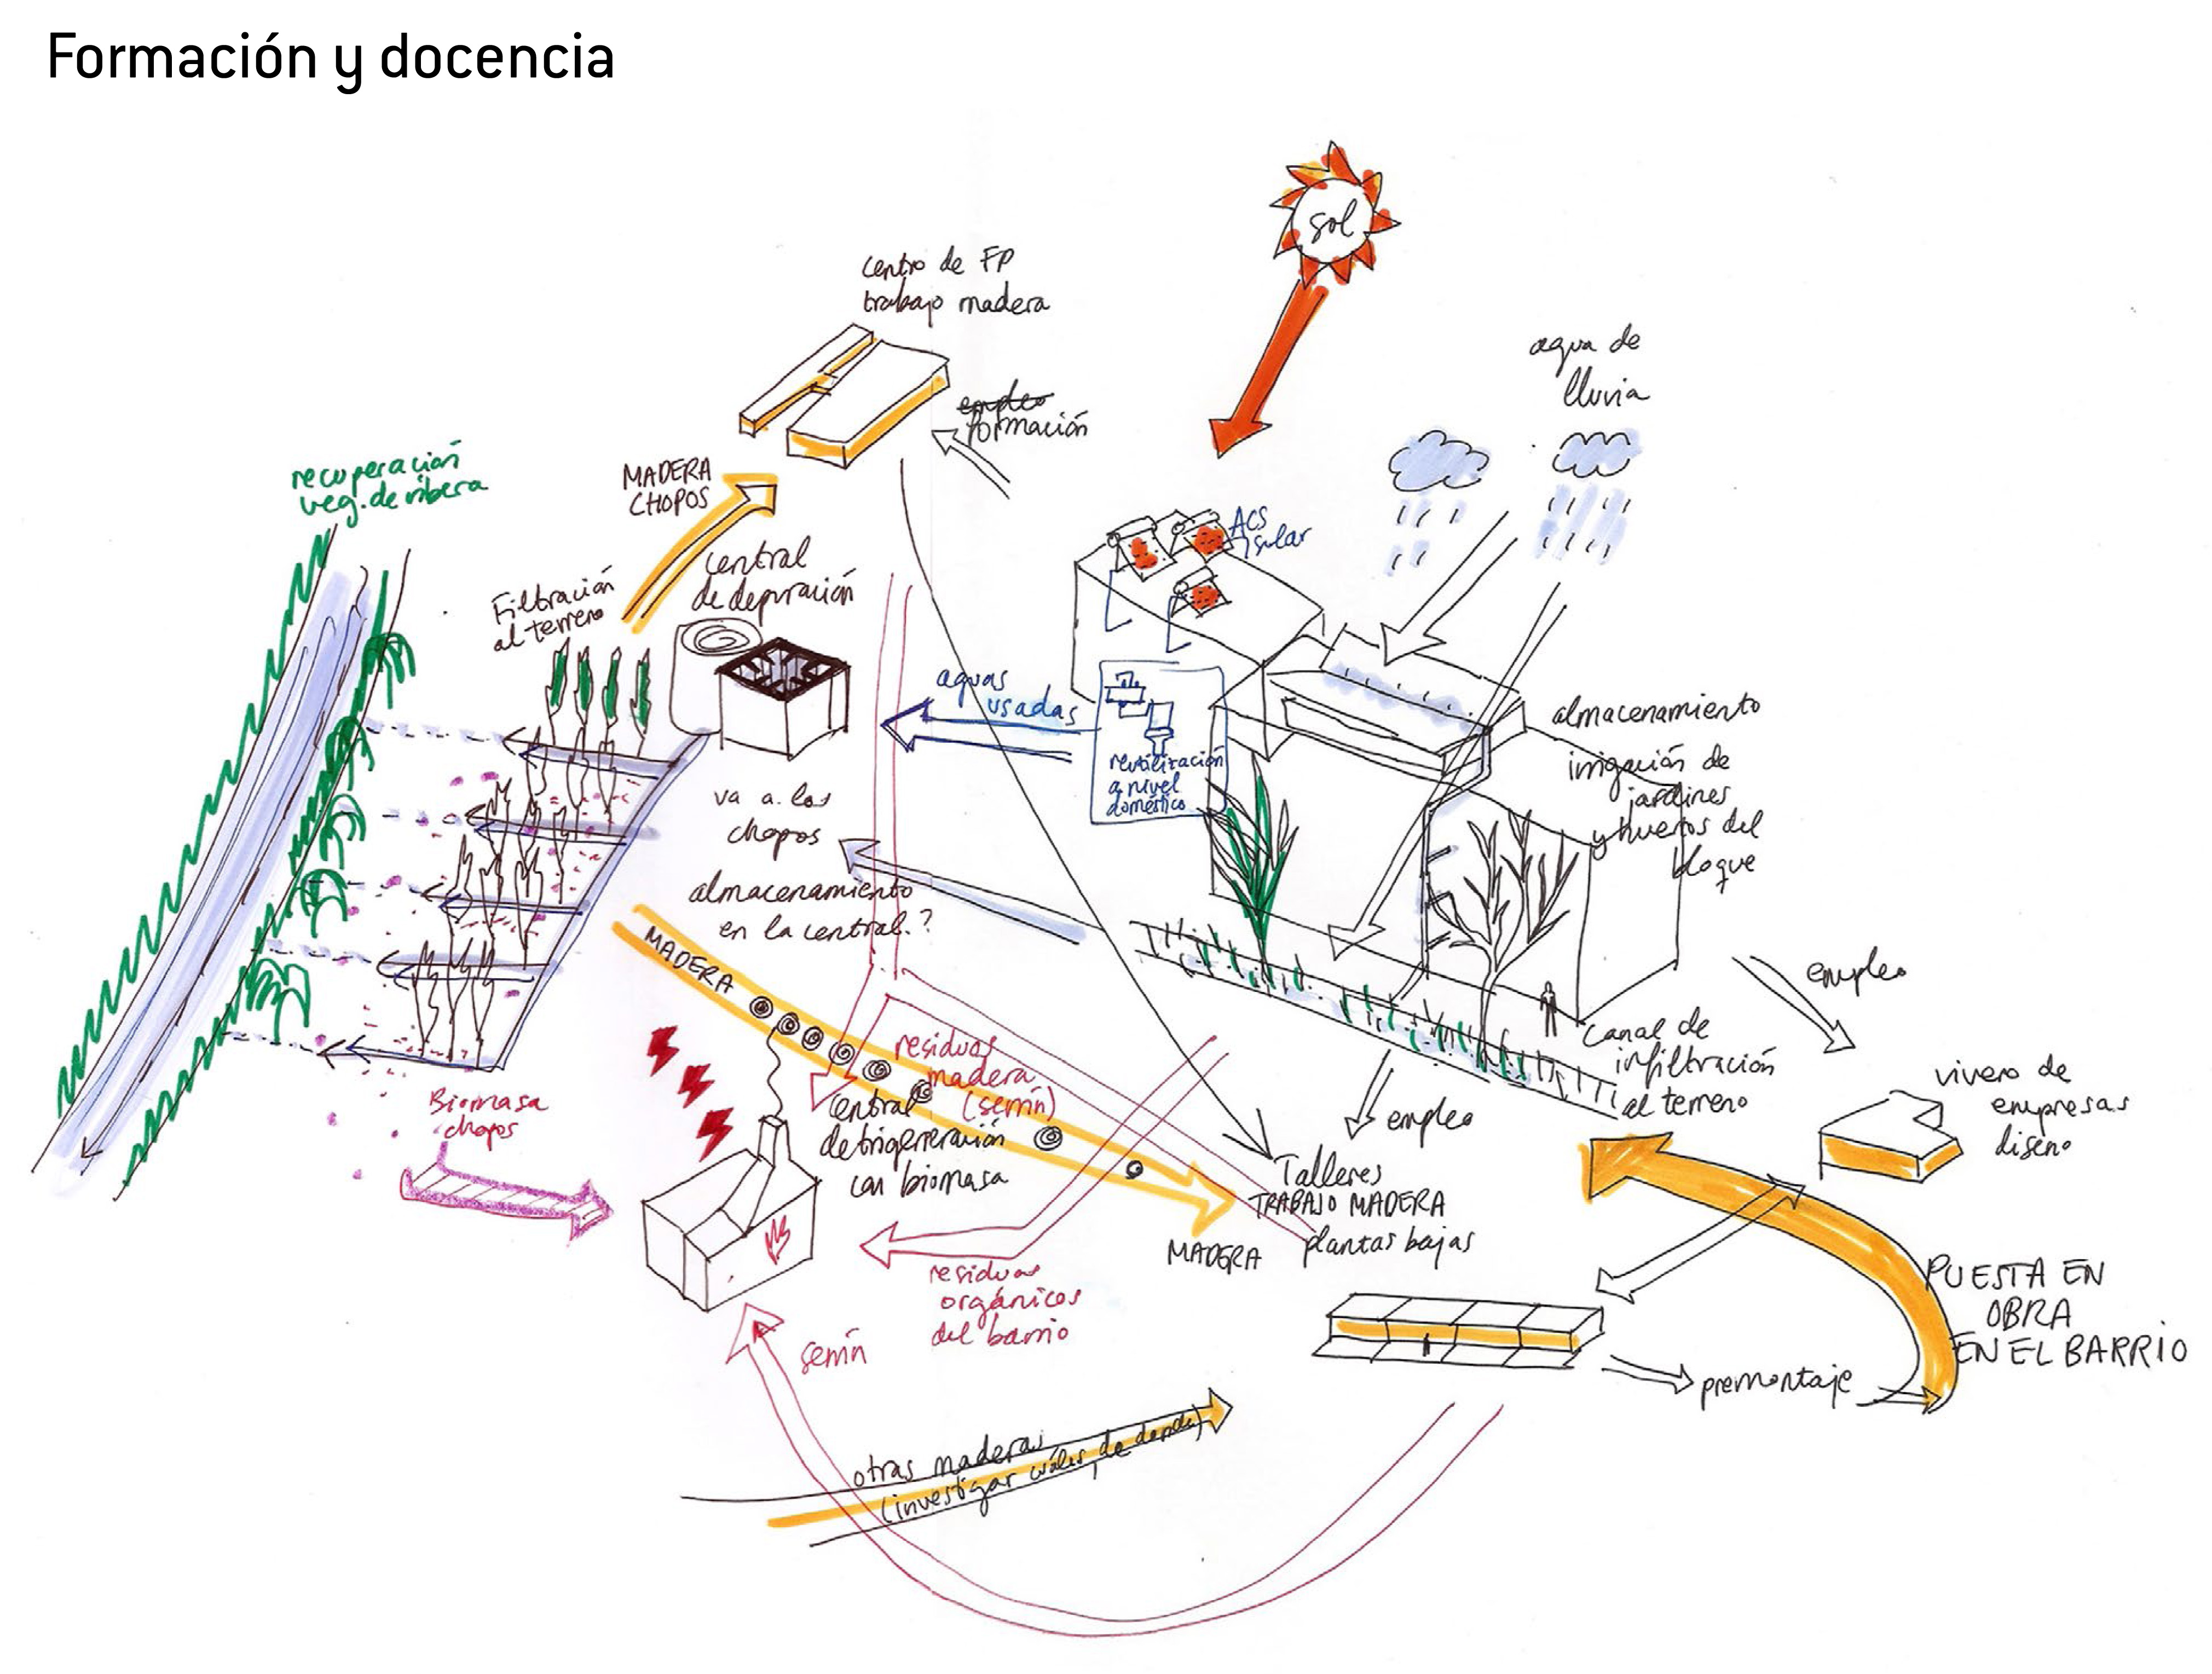 Formación y docencia
sol
centro de FP
trabajo madera
empleo
formación
agua de
lluvia
recuperación
veg. de ribera
MADERA
CHOPOS
ACS
solar
Filtración
al terreno
central
de depuración
aguas
usadas
reutilización
a nivel
doméstico
almacenamiento
irrigación de
jardines
y huertos del
bloque
va a los
chopos
almacenamiento
en la central?
MADERA
residuos
madera
(serrín)
central
con biomasa
Biomasa
chopos
empleo
canal de
infiltración
al terreno
empleo
vivero de
empresas
diseño
Talleres
TRABAJO MADERA
plantas bajas
MADERA
residuos
orgánicos
del barrio
serrín
PUESTA EN
OBRA
EN EL BARRIO
premontaje
otras maderas
(investigar cuáles, de dónde)